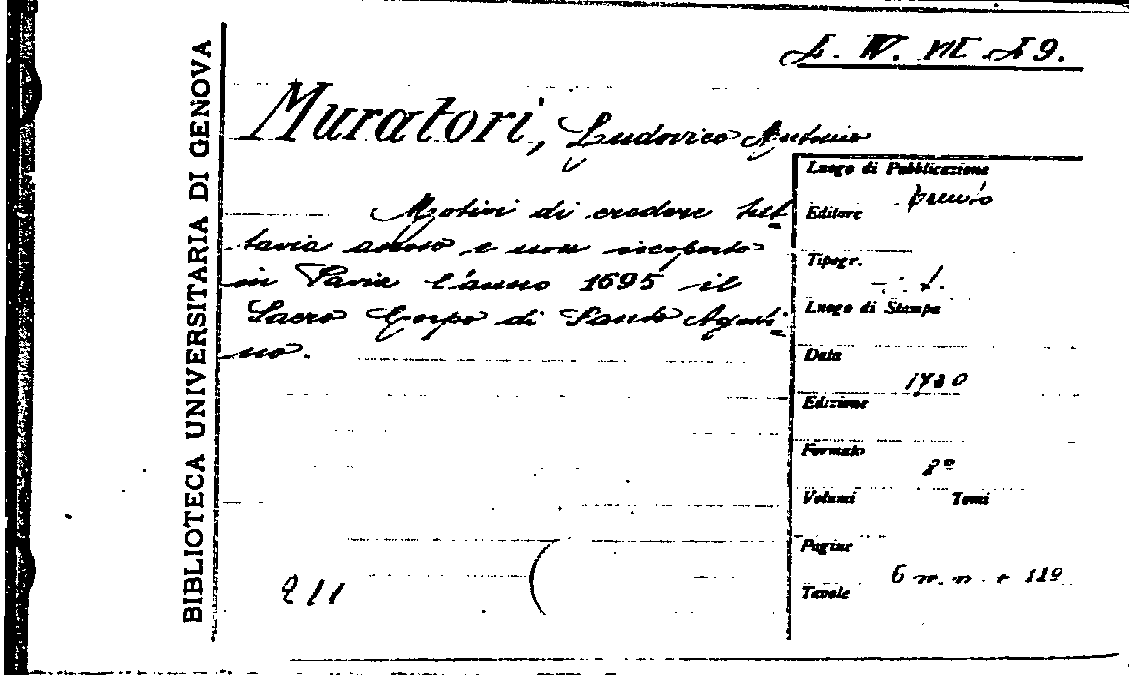 BIBLIOTECA UNIVERSITARIA DI GENOVA
IV. VII. 9.
Muratori, Ludovico Antonio
Motivi di credere tut-
tavia ascoso e non iscoperto
in Pavia l'anno 1695 il
Sacro Corpo di Santo Agosti-
no.
211
Luogo di Pubblicazione
Trento
Editore
Tipogr.
Luogo di Stampa
Data
1730
Edizione
Formato
8º
Volumi Tomi
Pagine
6 n. n. + 119
Tavole